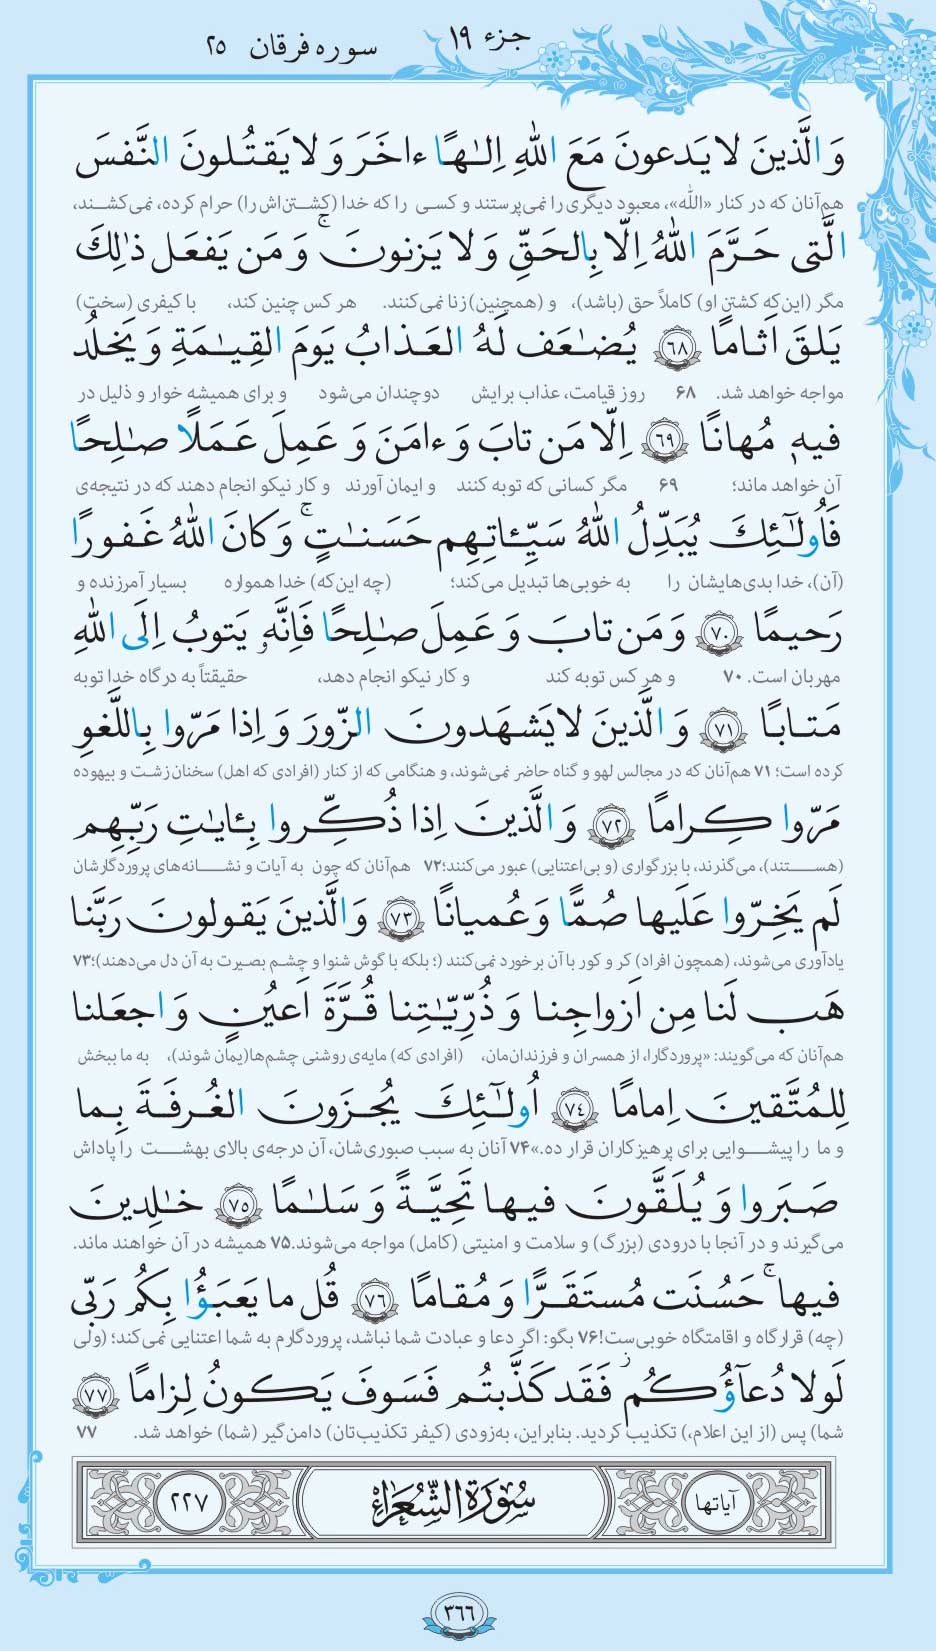 جزء ۱۹
سوره فرقان ۲۵
وَالَّذينَ لا يَدعونَ مَعَ اللّٰهِ اِلٰـهًا ءاخَرَ وَ لا يَقتُلونَ النَّفسَ
هم‌آنان که در کنار «اللّٰه»، معبود دیگری را نمی‌پرستند و کسی را که خدا (کشتن‌اش را) حرام کرده، نمی‌کشند،
الَّتى حَرَّمَ اللّٰهُ اِلّا بِالحَقِّ وَ لا يَزنونَ ۚ وَ مَن يَفعَل ذٰلِكَ
مگر (این‌که کشتن او) کاملاً حق (باشد)، و (همچنین) زنا نمی‌کنند. هر کس چنین کند، با کیفری (سخت)
يَلقَ اَثامًا ﴿۶۸﴾ يُضـٰعَف لَهُ العَذابُ يَومَ القِيـٰمَةِ وَ يَخلُد
مواجه خواهد شد. ۶۸ روز قیامت، عذاب برایش دوچندان می‌شود و برای همیشه خوار و ذلیل در
فيهٖ مُهانًا ﴿۶۹﴾ اِلّا مَن تابَ وَ ءامَنَ وَ عَمِلَ عَمَلًا صـٰلِحًا
آن خواهد ماند؛ ۶۹ مگر کسانی که توبه کنند و ایمان آورند و کار نیکو انجام دهند که در نتیجه‌ی
فَاُولـٰٓئِكَ يُبَدِّلُ اللّٰهُ سَيِّـٔاتِهِم حَسَنـٰتٍ ۚ وَ كانَ اللّٰهُ غَفورًا
(آن)، خدا بدی‌هایشان را به خوبی‌ها تبدیل می‌کند؛ (چه این‌که) خدا همواره بسیار آمرزنده و
رَحيمًا ﴿۷۰﴾ وَ مَن تابَ وَ عَمِلَ صـٰلِحًا فَاِنَّهٗ يَتوبُ اِلَى اللّٰهِ
مهربان است. ۷۰ و هر کس توبه کند و کار نیکو انجام دهد، حقیقتاً به درگاه خدا توبه
مَتابًا ﴿۷۱﴾ وَ الَّذينَ لا يَشهَدونَ الزّورَ وَ اِذا مَرّوا بِاللَّغوِ
کرده است؛ ۷۱ هم‌آنان که در مجالس لهو و گناه حاضر نمی‌شوند، و هنگامی که از کنار (افرادی که اهل) سخنان زشت و بیهوده
مَرّوا كِرامًا ﴿۷۲﴾ وَ الَّذينَ اِذا ذُكِّروا بِـٔايـٰتِ رَبِّهِم
(هستند)، می‌گذرند، با بزرگواری (و بی‌اعتنایی) عبور می‌کنند؛ ۷۲ هم‌آنان که چون به آیات و نشانه‌های پروردگارشان
لَم يَخِرّوا عَلَيها صُمًّا وَ عُميانًا ﴿۷۳﴾ وَ الَّذينَ يَقولونَ رَبَّنا
یادآوری می‌شوند، (همچون افراد) کر و کور با آن برخورد نمی‌کنند (؛ بلکه با گوش شنوا و چشم بصیرت به آن دل می‌دهند)؛ ۷۳
هَب لَنا مِن اَزواجِنا وَ ذُرِّيّـٰتِنا قُرَّةَ اَعيُنٍ وَ اجعَلنا
هم‌آنان که می‌گویند: «پروردگارا، از همسران و فرزندان‌مان، (افرادی که) مایه‌ی روشنی چشم‌ها(یمان شوند)، به ما ببخش
لِلمُتَّقينَ اِمامًا ﴿۷۴﴾ اُولـٰٓئِكَ يُجزَونَ الغُرفَةَ بِما
و ما را پیشوایی برای پرهیزکاران قرار ده.» ۷۴ آنان به سبب صبوری‌شان، آن درجه‌ی بالای بهشت را پاداش
صَبَروا وَ يُلَقَّونَ فيها تَحِيَّةً وَ سَلـٰمًا ﴿۷۵﴾ خـٰلِدينَ
می‌گیرند و در آنجا با درودی (بزرگ) و سلامت و امنیتی (کامل) مواجه می‌شوند. ۷۵ همیشه در آن خواهند ماند.
فيها ۚ حَسُنَت مُستَقَرًّا وَ مُقامًا ﴿۷۶﴾ قُل ما يَعبَؤُا بِكُم رَبّى
(چه) قرارگاه و اقامتگاه خوبی‌ست! ۷۶ بگو: اگر دعا و عبادت شما نباشد، پروردگارم به شما اعتنایی نمی‌کند؛ (ولی
لَولا دُعآؤُكُم ۖ فَقَد كَذَّبتُم فَسَوفَ يَكونُ لِزامًا ﴿۷۷﴾
شما) پس (از این اعلام)، تکذیب کردید. بنابراین، به‌زودی (کیفر تکذیب‌تان) دامن‌گیر (شما) خواهد شد. ۷۷
آیاتها سُورَةُ الشُّعَرَاءِ ۲۲۷
۳۶۶